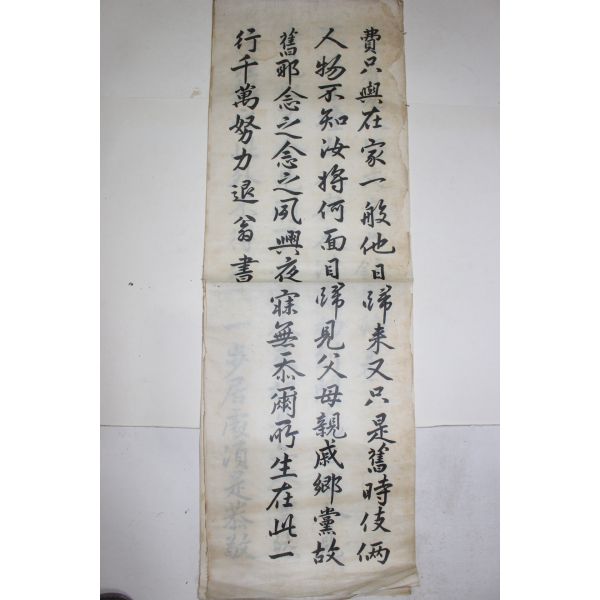 費只與在家一般他日歸来又只是舊時伎倆
人物不知汝将何面目歸見父母親戚鄉黨故
舊耶念之念之夙興夜寐無忝爾所生在此一
行千萬努力退翁書
一步居處須是恭敬